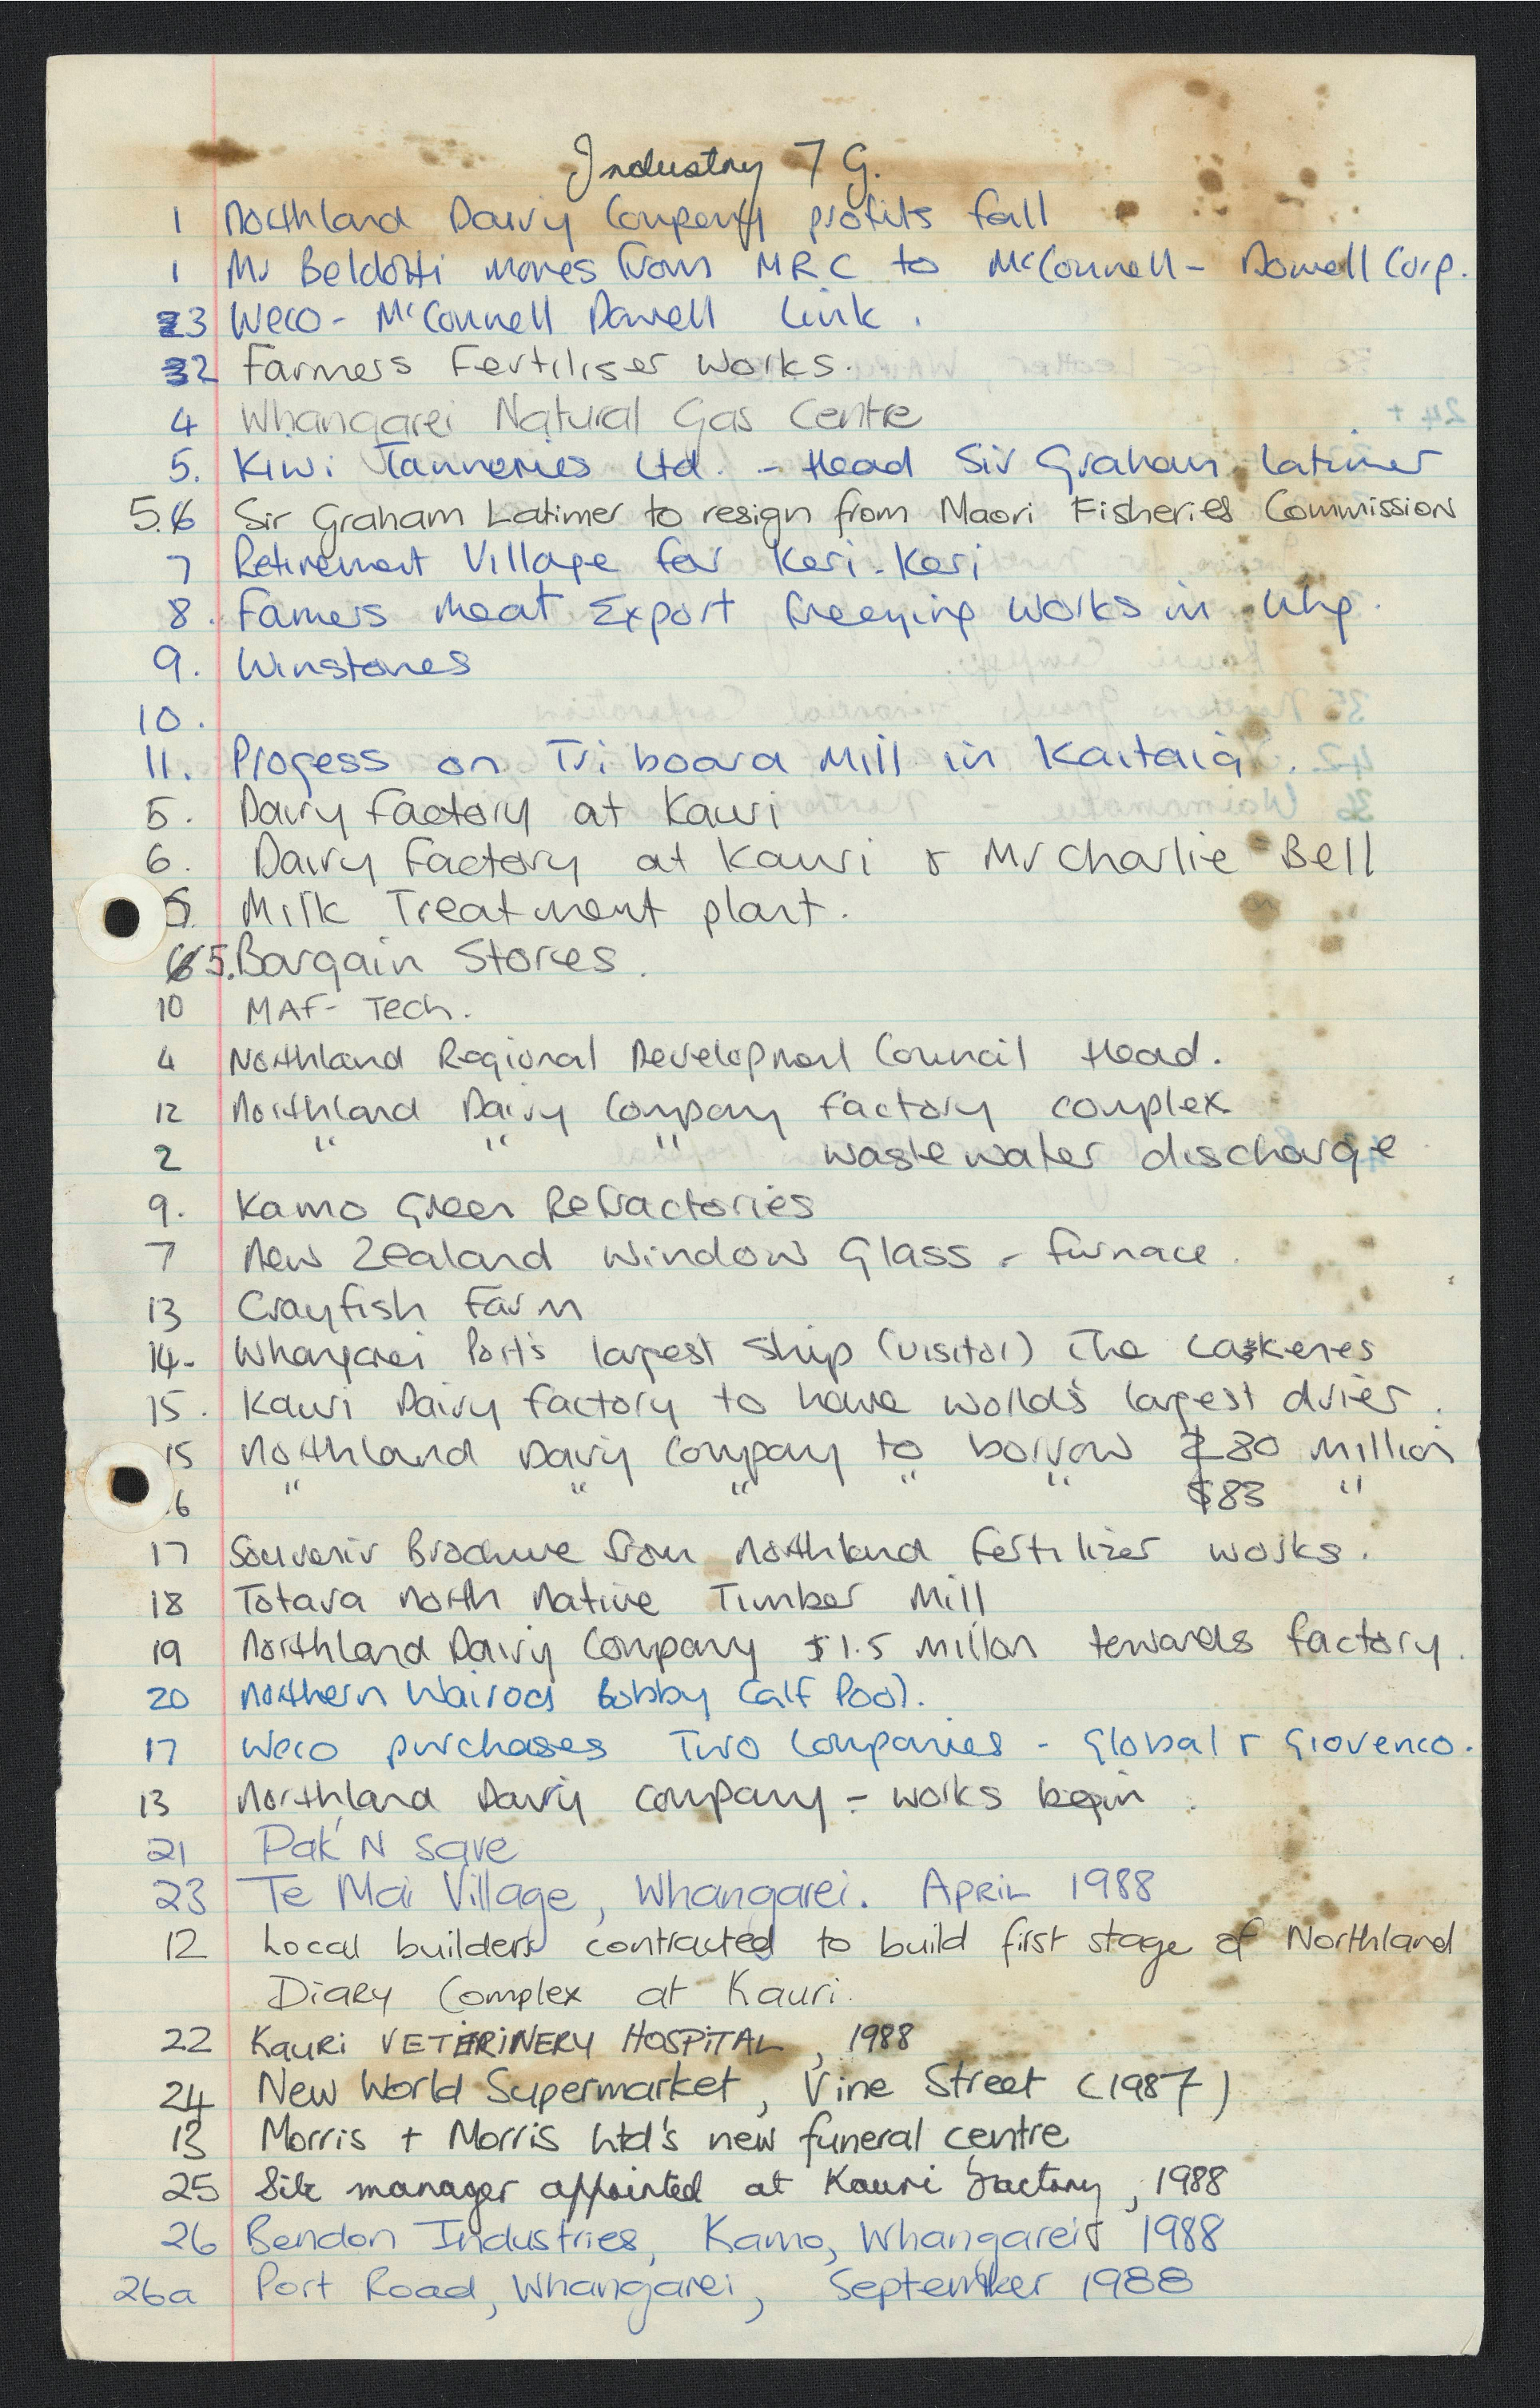 Industry 7 G.
1 Northland Dairy Company profits fall
1 Mr Beldotti moves from MRC to McConnell - Dowell Corp.
3 Weco - McConnell Dowell Link.
2 Farmers Fertiliser Works.
4 Whangarei Natural Gas Centre
5. Kiwi Tanneries Ltd. - Head Sir Graham Latimer
5.6 Sir Graham Latimer to resign from Maori Fisheries Commission
7 Retirement Village for Keri-Keri
8. Famers Meat Export freezing works in Whg.
9. Winstones
10.
11. Progess on Tri board Mill in Kaitaia.
5. Dairy factory at Kauri
6. Dairy Factory at Kauri & Mr Charlie Bell
5. Milk Treatment plant.
65. Bargain Stores.
10 MAF- Tech.
4 Northland Regional Development Council Head.
12 Northland Dairy Company factory complex
2 " " " waste water discharge
9. Kamo Green Refractories
7 New Zealand Window Glass - furnace.
13 Crayfish Farm
14- Whangarei Port's largest ship (visitor) The
15. Kauri Dairy factory to have world's largest drier.
15 Northland Dairy Company to borrow $80 million
16 " " " " " $83 "
17 Souvenir Brochure from Northland Fertilizer works.
18 Totara North Native Timber Mill
19 Northland Dairy Company $1.5 millon towards factory.
20 Northern Wairoa Bobby Calf Pool.
17 Weco purchases Two Companies - Global & Giovenco.
13 Northland Dairy company - works begin.
21 Pak'N Save
23 Te Mai Village, Whangarei. APRIL 1988
12 Local builders contracted to build first stage of Northland
Diary Complex at Kauri.
22 Kauri VETERINERY HOSPITAL, 1988
24 New World Supermarket, Vine Street (1987)
13 Morris + Morris Ltd's new funeral centre
25 Site manager appointed at Kauri factory, 1988
26 Bendon Industries, Kamo, Whangarei 1988
26a Port Road, Whangarei, September 1988